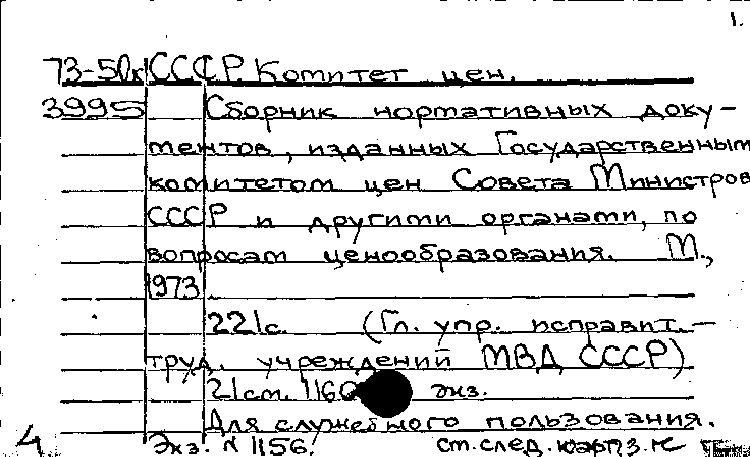 1.
73-50к СССР. Комитет цен.
3995 Сборник нормативных доку-
ментов, изданных Государственным
комитетом цен Совета Министров
СССР и другими органами, по
вопросам ценообразования. М.,
1973.
221с. (Гл. упр. исправит.-
труд. учреждений МВД СССР)
21см. 1160 экз.
Для служебного пользования.
4 Экз. № 1156. см.след.карт.